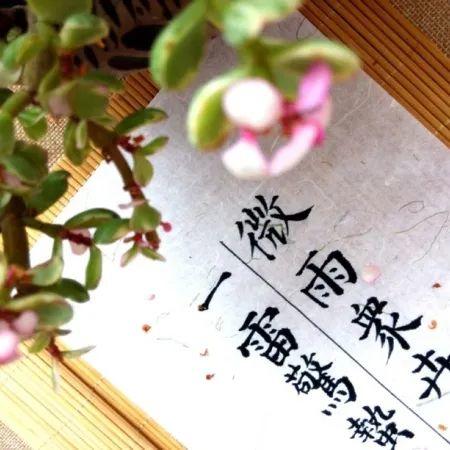 微雨衆卉
一雷驚蟄